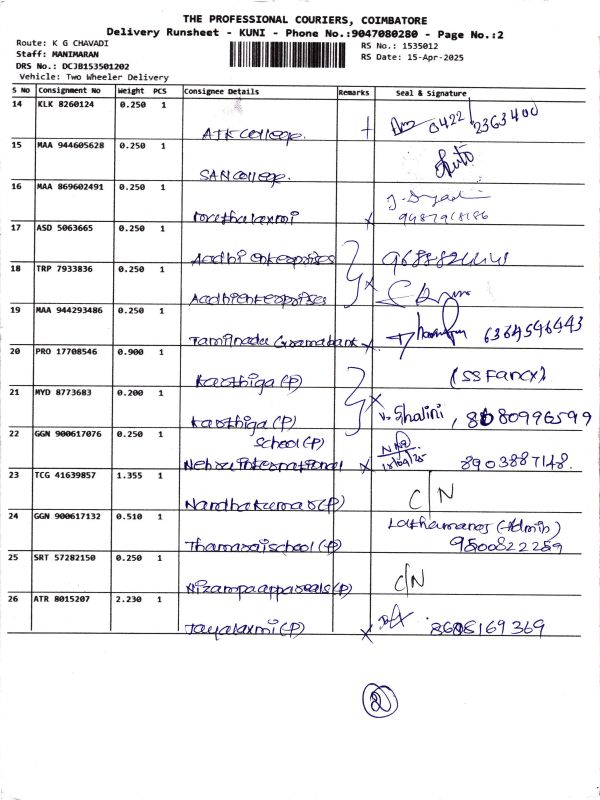 THE PROFESSIONAL COURIERS, COIMBATORE
Delivery Runsheet - KUNI - Phone No.:9047080280 - Page No.:2
Route: K G CHAVADI
RS No.: 1535012
Staff: MANIMARAN
RS Date: 15-Apr-2025
DRS No.: DCJB153501202
Vehicle: Two Wheeler Delivery
S No Consignment No Weight PCS Consignee Details Remarks Seal & Signature
14 KLK 8260124 0.250 1
AJK College. 0422 2363400
15 MAA 944605628 0.250 1
SAN College.
16 MAA 869602491 0.250 1
x 9487918186
17 ASD 5063665 0.250 1
Aadhi enterprises
18 TRP 7933836 0.250 1
Aadhi enterprises x
19 MAA 944293486 0.250 1
Tamilnadu Gramabank x 6364546443
20 PRO 17708546 0.900 1
Karthiga (P) (SS Fancy)
21 MYD 8773683 0.200 1
Karthiga (P) x V. Shalini, 8680996599
22 GGN 900617076 0.250 1
School (P)
Nehru international x 8903887148.
23 TCG 41639857 1.355 1
Nandhakumar (P) C/N
24 GGN 900617132 0.510 1
Thamarai school (P) (Admin)
9500822259
25 SRT 57282150 0.250 1
Nizampaapparals (P) C/N
26 ATR 8015207 2.230 1
Jayalaxmi (P) x 8608169369
2